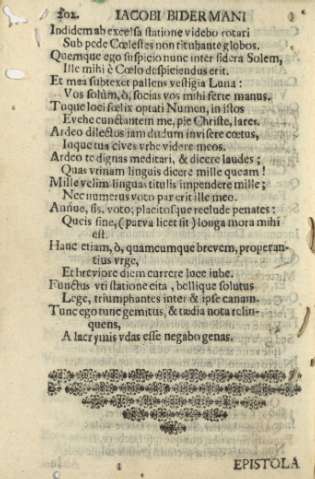 202. IACOBI BIDERMANI
Indidem ab excelsa statione videbo rotari
Sub pede Cœlestes non titubante globos.
Quemque ego suspicio nunc inter sidera Solem,
Ille mihi è Cœlo despiciendus erit.
Et mea subter pallens vestigia Luna:
Vos solùm, ò, socias vos mihi ferte manus.
Tuque loci fœlix optati Numen, in istos
Evehe cunctantem me, pie Christe, lares.
Ardeo dilectos iam dudum invisere cœtus,
Inque tua cives vrbe videre meos.
Ardeo te dignas meditari, & dicere laudes;
Quas vrinam linguis dicere mille queam!
Mille velim linguas titulis impendere mille;
Nec numerus voto par erit ille meo.
Annue, sis, voto, placitosque reclude penates:
Queis sine, (parva licet sit) longa mora mihi
est.
Hanc etiam, ò, quamcumque brevem, properan-
tius vrge,
Et breviore diem currere luce iube.
Functus vti statione cita, bellique solutus
Lege, triumphantes inter & ipse canam.
Tunc ego tunc gemitus, & tædia nota relin-
quens,
A lacrymis vdas esse negabo genas.
EPISTOLA